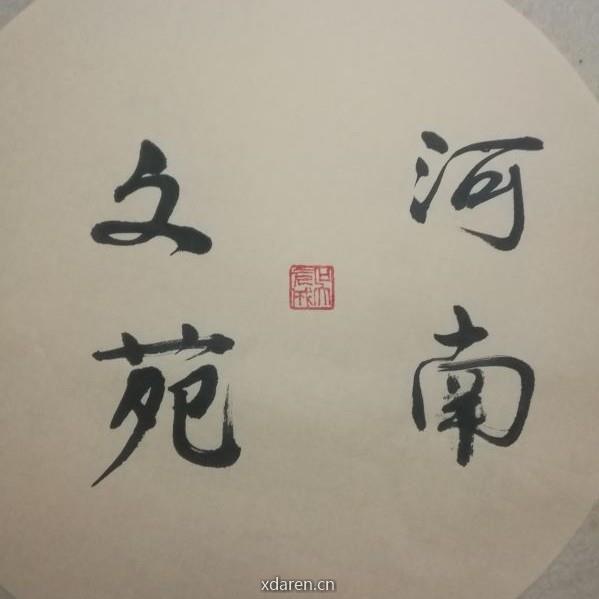 河南
文苑
xdaren.cn